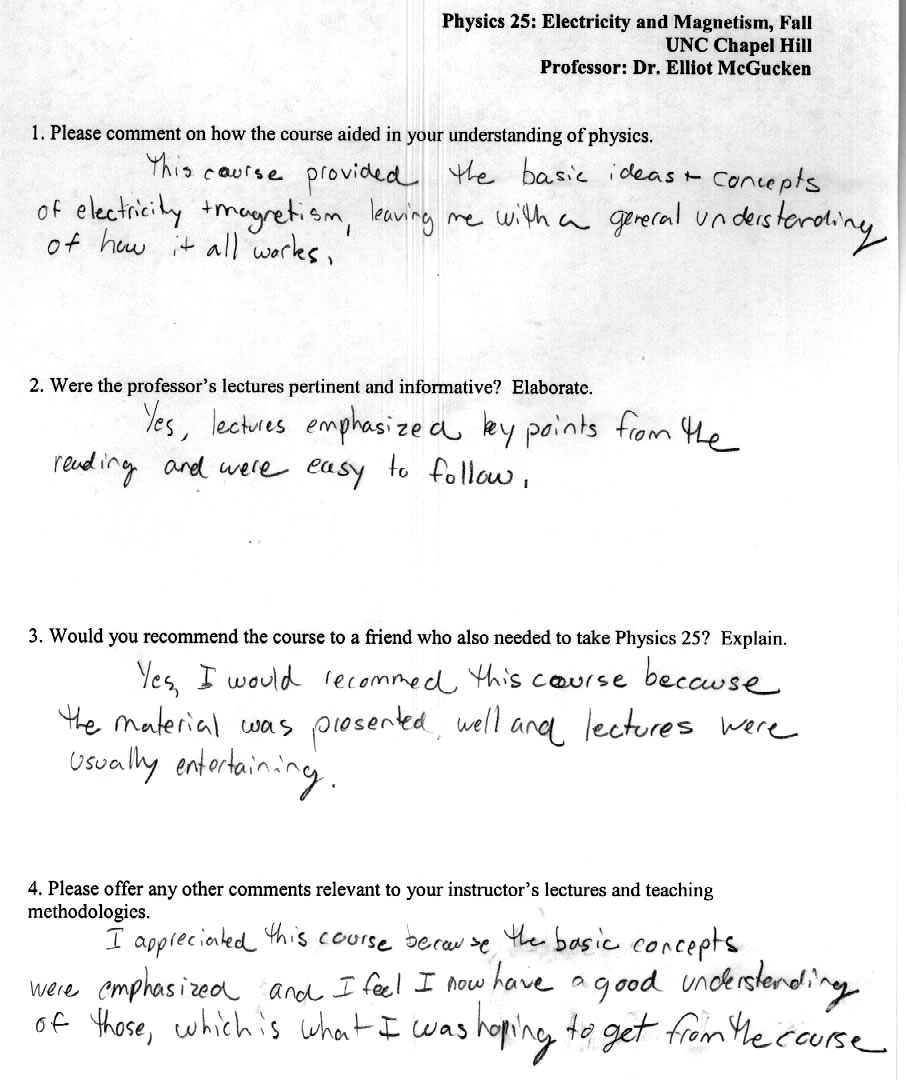 Physics 25: Electricity and Magnetism, Fall
UNC Chapel Hill
Professor: Dr. Elliot McGucken
1. Please comment on how the course aided in your understanding of physics.
This course provided the basic ideas + concepts
of electricity + magnetism, leaving me with a general understanding
of how it all works.
2. Were the professor's lectures pertinent and informative? Elaborate.
Yes, lectures emphasized key points from the
reading and were easy to follow.
3. Would you recommend the course to a friend who also needed to take Physics 25? Explain.
Yes, I would recommed this course because
the material was presented well and lectures were
usually entertaining.
4. Please offer any other comments relevant to your instructor's lectures and teaching
methodologies.
I appreciated this course because the basic concepts
were emphasized and I feel I now have a good understanding
of those, which is what I was hoping to get from the course